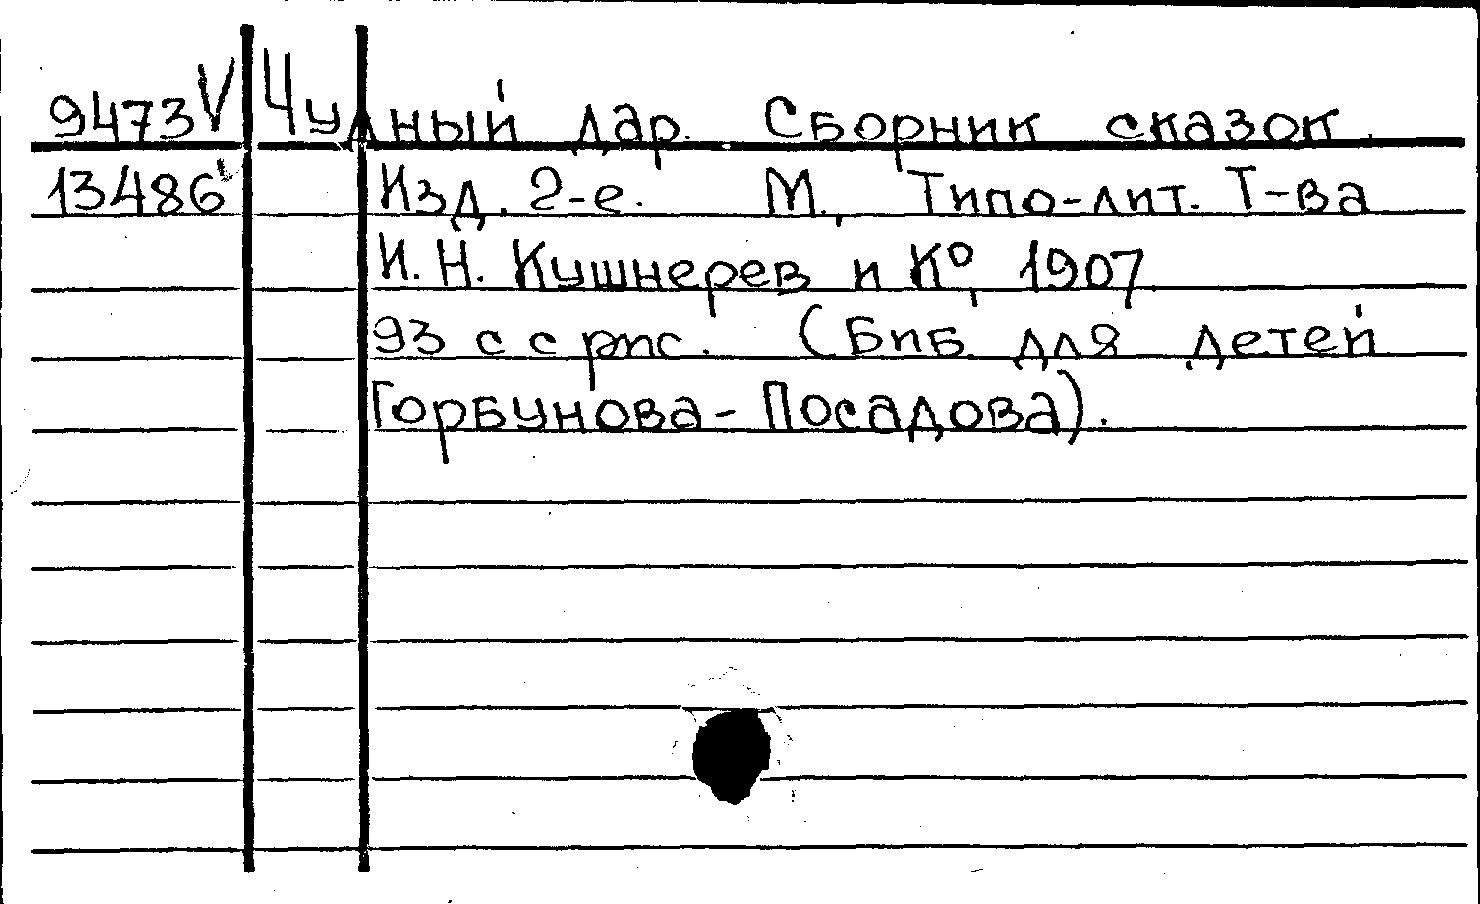 9473 V Чудный дар. Сборник сказок.
13486 V Изд. 2-е. М., Типо-лит. Т-ва
И. Н. Кушнерев и К°, 1907.
93 с с рис. (Биб. для детей
Горбунова-Посадова).